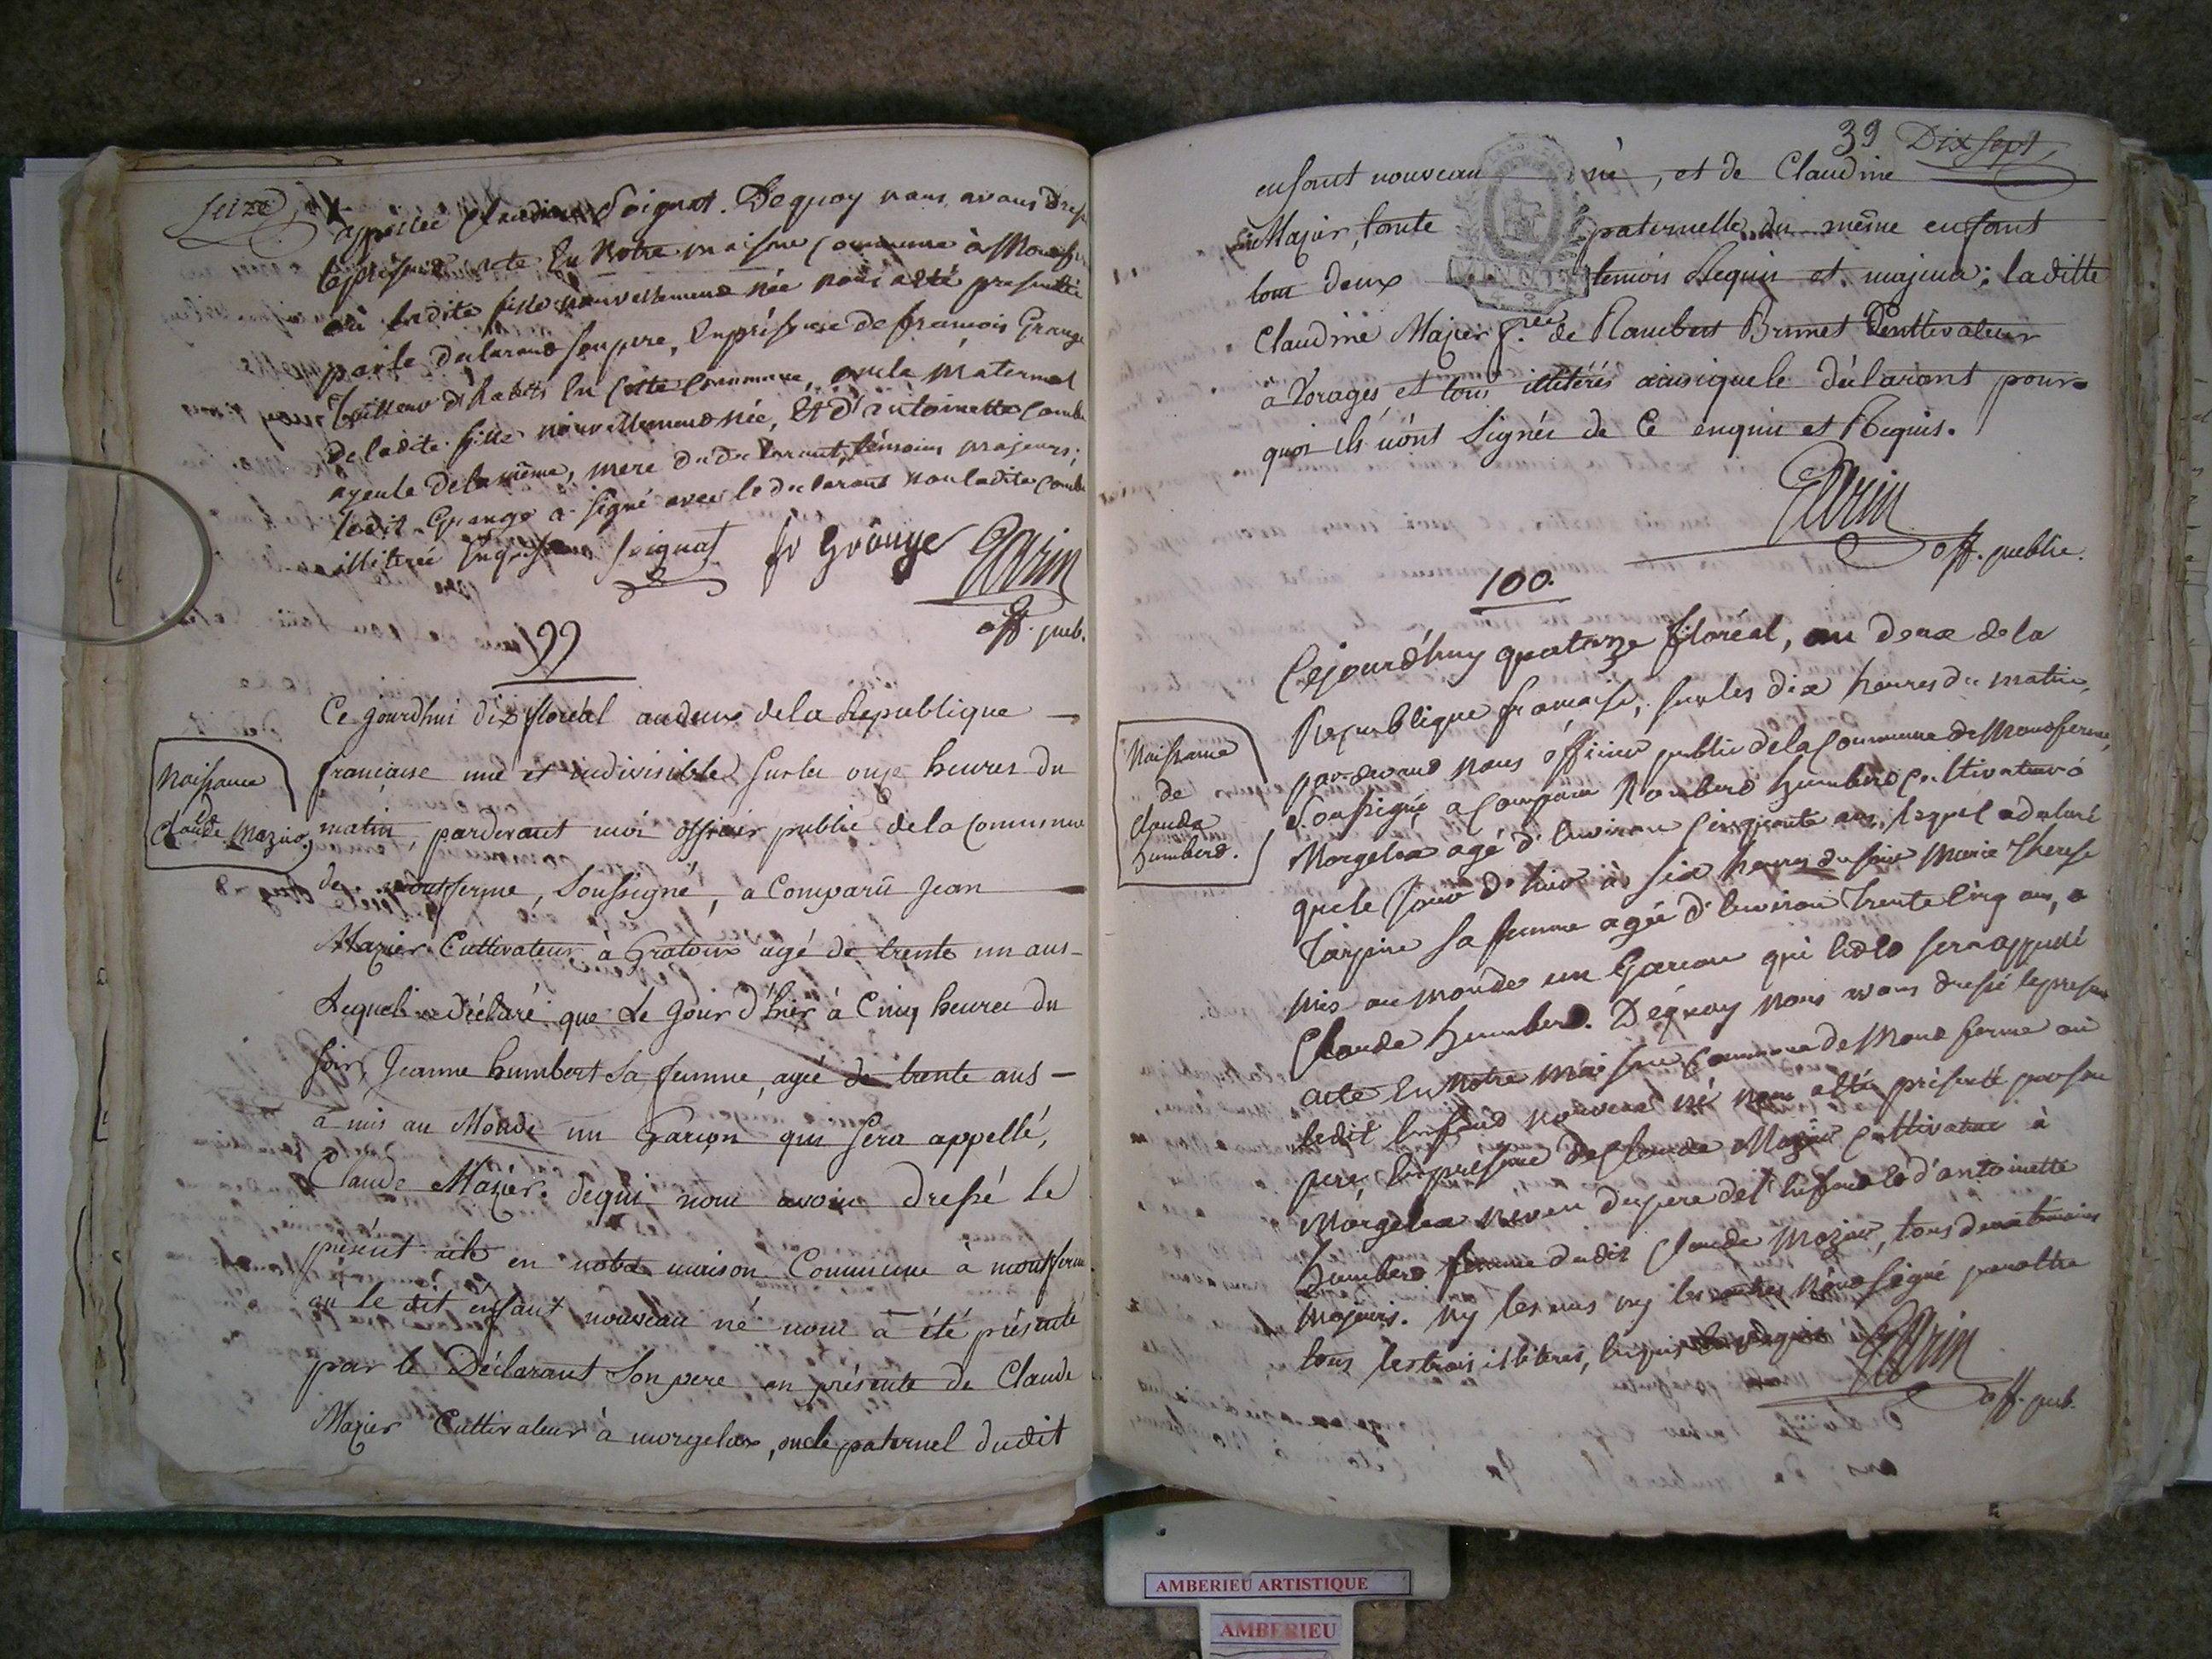 seize
appellée Claudine Soignat. Dequoy nous avons dressé
le présent acte En Notre maison Commune à Montfer
où ladite fille nouvellement née nous a été presentée
par le declarant son pere, En présence de françois Grange
Tailleur d'habits En Cette Commune, oncle maternel
de ladite fille nouvellement née, Et d'antoinette Combe
ayeule de la même, mere du declarant, témoins majeurs;
ledit Grange a signé avec le declarant non ladite Combe
illiterée Enquise
Soignat fs Grange Garin
off. pub.
99
Naissance
de
Claude Mazier
Ce gourdhui dix floréal an deux de la Republique
française une et indivisible Sur les onze heures du
matin, pardevant moi officier public de la Commune
de montferme, Soussigné, a Comparû Jean
Mazier Cultivateur à Gratoux agé de trente un ans
Lequel a Déclaré que Le Jour d'hier à Cinq heures du
soir, Jeanne humbert Sa femme, agée de trente ans
a mis au Monde un Garçon qui Sera appellé,
Claude Mazier. dequi nous avons dressé le
présent acte en notre maison Commune à montferme
où le dit enfant nouveau né nous a été présenté
par le Déclarant Son pere en présence de Claude
Mazier Cultivateur à morgelas, oncle paternel dudit
39 Dix Sept
enfant nouveau né, et de Claudine
Mazier, tante paternelle du même enfant
tous deux temoins Requis et majeurs; laditte
Claudine Mazier f.e de Rambert Brunet Cultivateur
à Vorages et tous illitérés ainsi que le déclarant pour
quoi ils n'ont Signés de Ce enquis et Requis.
Garin
off. public.
100.
Naissance
de
Claude
humbert.
Cejourd'huy quatorze floréal, an deux de la
République francaise, sur les dix heures du matin,
par-devant nous officier public de la Commune de Montferme,
soussigné a Comparu Rambert humbert Cultivateur à
Morgelas agé d'Environ Cinquante ans, lequel a declaré
que le Jour d'hier à six heures du soir Marie Therese
Tarpin sa femme agée d'Environ trente Cinq ans, a
mis au monde un Garcon qui sera appellé
Claude humbert. Dequoy nous avons dressé le present
acte En Notre maison Commune de Montferme où
ledit Enfant nouveau né nous a été présenté par son
pere, En présence de Claude Mazier Cultivateur à
Morgelas neveu du pere del' Enfant Et d'antoinette
humbert femme dudit Claude Mazier, tous deux témoins
majeurs. Ny les uns ny les autres n'ont signé pour être
tous les trois illiteres, Enquis
Garin
off. pub.
AMBERIEU ARTISTIQUE
AMBERIEU